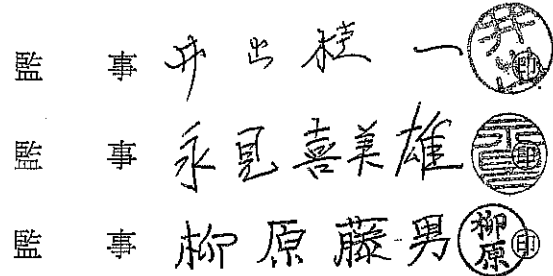 監事 井出桂一 印
監事 永見喜美雄 印
監事 柳原藤男 柳原 印